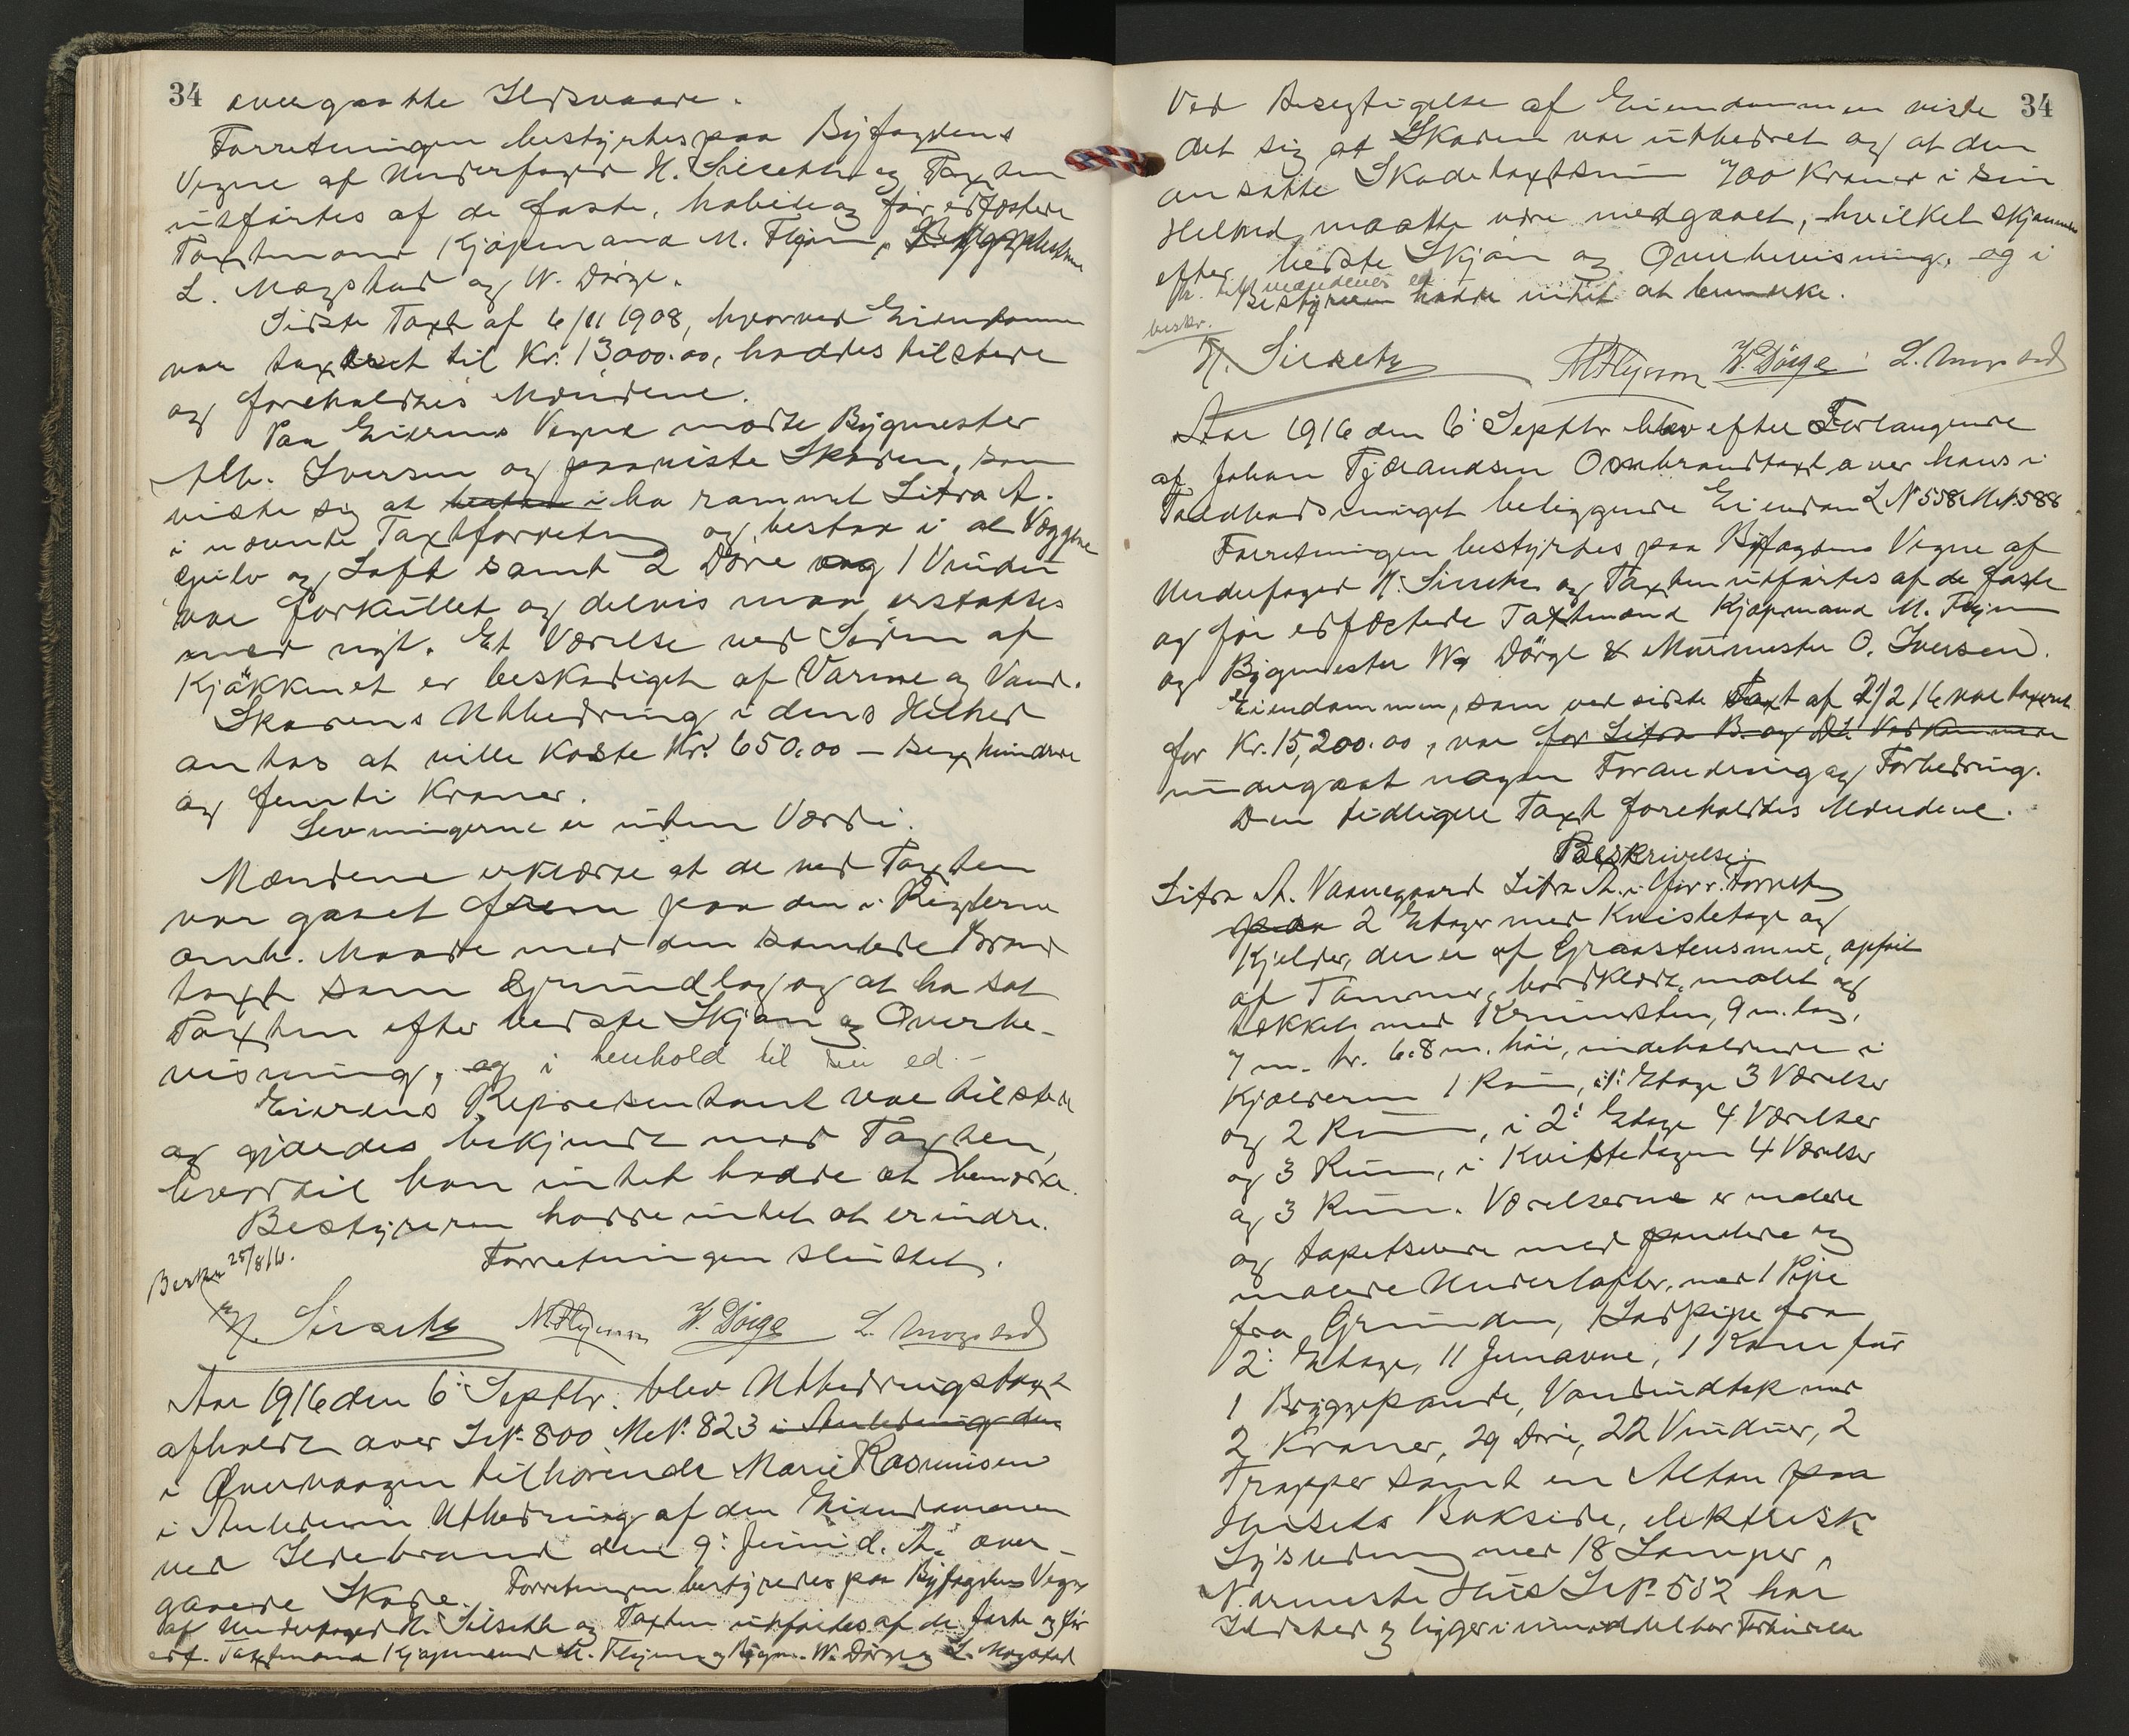 34 overgaatte Ildsvaade.
Forretningen bestyrtes paa Byfogdens
Vegne af Underfoged H. Sirseth og Taxten
utførtes af de faste, habile og før edfæstede
Taxtmænd Kjøpmand M. Flyum,
L. Magstad og W. Dörge.
Sidste Taxt af 6/11 1908, hvorved Eiendommen
var taxeret til Kr. 13,000.00, haddes tilstede
og foreholdtes Mændene.
Paa Eierens Vegne mødte Bygmester
Alb. Iversen og paaviste Skaden, som
viste sig at bestaa i ha rammet Litra A.
i nævnte Taxtforretn og bestaa i at Væggene
gulv og Loft samt 2 Døre og 1 Vindu
var forkullet og delvis maa erstattes
med nyt. Et Værelse ved Siden af
Kjøkkenet er beskadiget af Varme og Vand.
Skadens Utbedring i dens Helhed
antas at ville koste Kr. 650.00 – sex hundrede
og femti Kroner.
Levningerne er uten Værdi.
Mændene erklærte at de ved Taxten
var gaaet frem paa den i Reglerne
omh. Maade med den samlede Brand
taxt som Grundlag og at ha sat
Taxten efter bedste Skjøn og Overbe-
visning, og i henhold til sin ed. –
Eierens Representant var tilstede
og gjordes bekjendt med Taxten,
hvortil han intet hadde at bemærke.
Bestyreren hadde intet at erindre.
Forretningen sluttet.
Beskr 25/8 16.
H. Sirseth MFlyum W. Dörge L. Magstad
Aar 1916 den 6' Septbr. blev Utbedringstaxt
afholdt over LN° 800 MN° 823 i Anledning den
i Overvaagen tilhørende Marie Rasmussen
i Anledning Utbedring af den Eiendommen
ved Ildebrand den 9' Juni d. A. over-
gaaede Skade. Forretningen bestyredes paa Byfogdens Vegne
af Underfoged H. Sirseth og Taxten utførtes af de faste og før
edf. Taxtmænd Kjøpmand M. Flyum og Bygm. W. Dörge og L. Magstad
34
Ved Besegtigelse af Eiendommen viste
det sig at Skaden var utbedret og at den
ansatte Skadetaxtsum 700 Kroner i sin
Helhed maatte være medgaaet, hvilket skjønnedes
efter bedste Skjøn og Overbevisning, og i
h. til mændenes ed
Bestyreren hadde intet at bemærke.
beskr.
H. Sirseth MFlyum W. Dörge L. Magstad
Aar 1916 den 6' Septbr blev efter Forlangende
af Johan Tjærandsen Ombrandtaxt over hans i
beliggende Eiendom LN° 558 MN° 588
Forretningen bestyrtes paa Byfogdens Vegne af
Underfoged H. Sirseth og Taxten utførtes af de faste
og før edfæstede Taxtmænd Kjøpmand M. Flyum
og Bygmester W. Dörge & Murmester O. Iversen.
Eiendommen, som ved sidste Taxt af 2/2 16 var taxeret
for Kr. 15,200.00, var for Litra B. og
undergaat nogen Forandring og Forbedring.
Den tidligere Taxt foreholdtes Mændene.
Beskrivelse:
Litra A. Vaanegaard Litra A. i forr. Forretn
paa 2 Etager med Kvistetage og
Kjelder, der er af Graastensmur, opført
af Tømmer, bordklædt, malet og
tækket med Krumsten, 9 m. lang,
7 m. br. 6.8 m. høi, indeholdende i
Kjælderen 1 Rum, i 1' Etage 3 Værelser
og 2 Rum, i 2' Etage 4 Værelser
og 3 Rum, i Kvistetagen 4 Værelser
og 3 Rum. Værelserne er malede
og tapetserede med pandede og
malede Underlofter, med 1 Pipe
fra Grunden, 1 Ladpipe fra
2' Etage, 11 Jernovne, 1 Komfur
1 Bryggepande, Vandindtak med
2 Kraner, 29 Døre, 22 Vinduer, 2
Trapper samt en Altan paa
Husets Bakside, elektrisk
Lysledning med 18 Lamper,
Nærmeste Hus LN° 502 har
Ildsted og ligger i umiddelbar Forbindelse